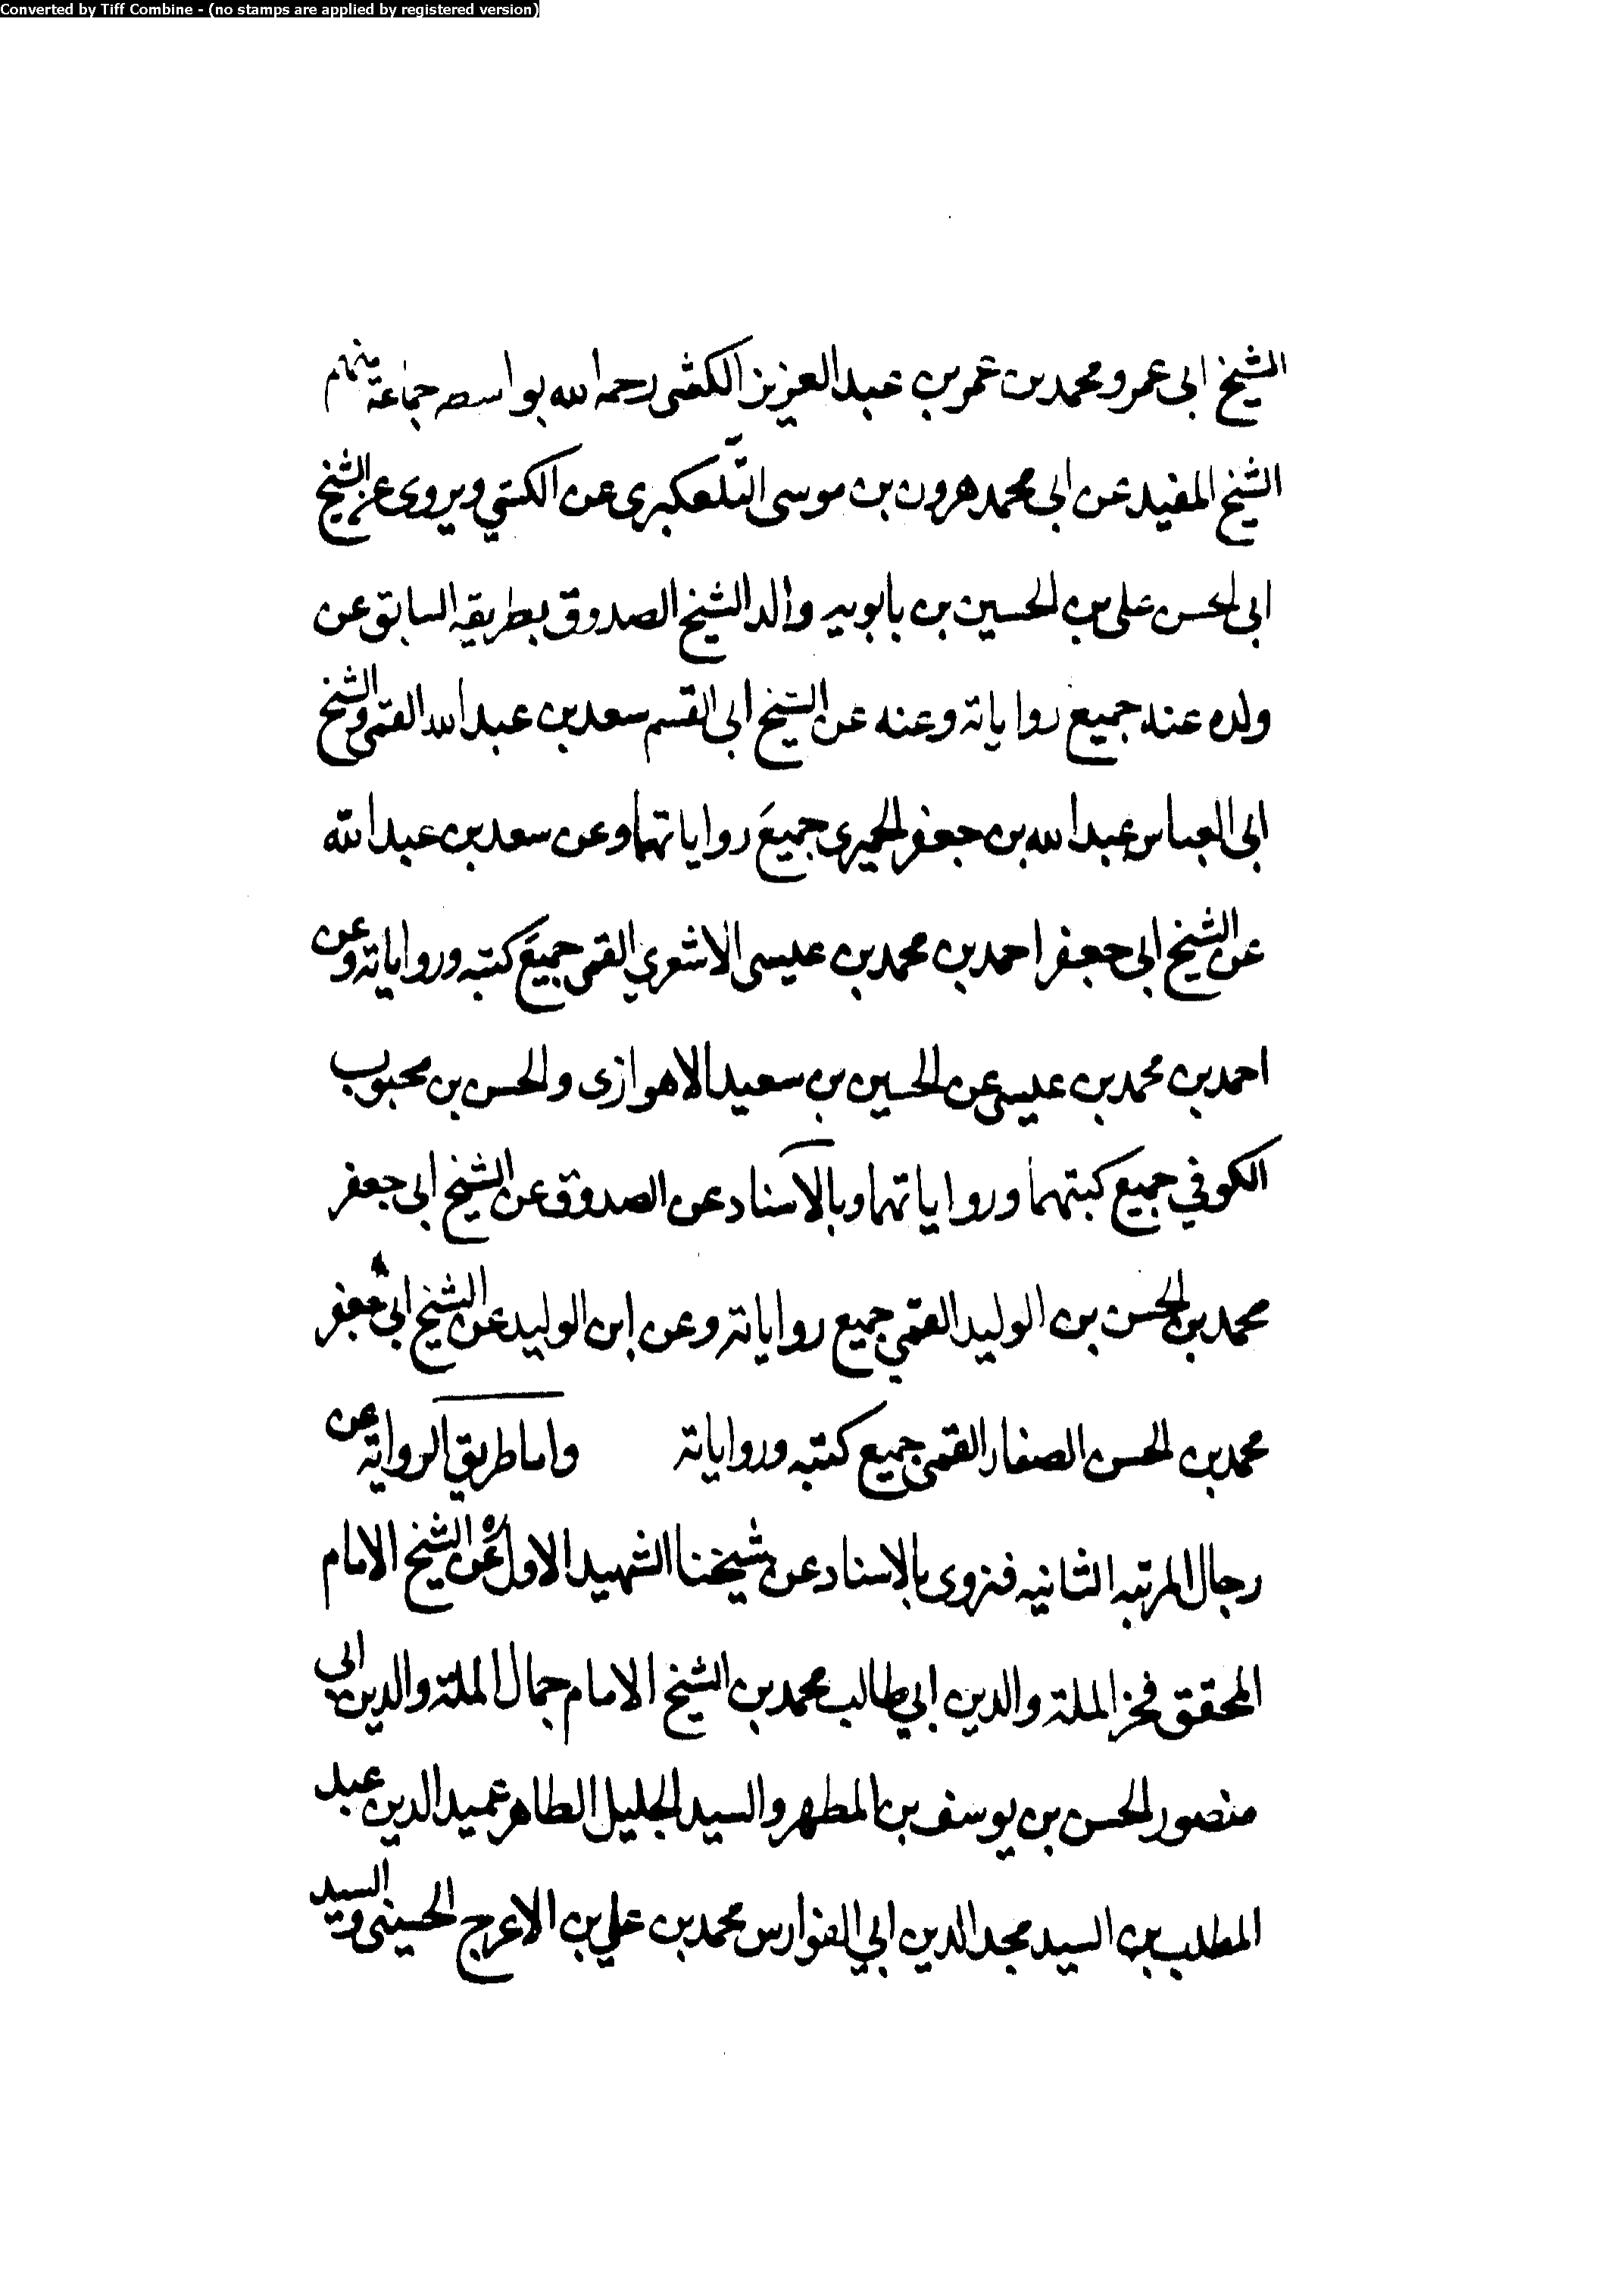 Converted by Tiff Combine - (no stamps are applied by registered version)
الشيخ ابى عمرو محمد بن عمر بن عبد العزيز الكشى رحمه الله بواسطه جماعة منهم
الشيخ المفيد عن ابى محمد هرون بن موسى التلعكبرى عن الكشي ويروى عن الشيخ
ابى الحسن على بن الحسين بن بابويه والد الشيخ الصدوق بطريقه السابق عن
ولده عنه جميع رواياته وعنه عن الشيخ ابى القسم سعد بن عبد الله القمى والشيخ
ابى العباس عبد الله بن جعفر الحميرى جميعَ رواياتهما وعن سعد بن عبد الله
عن الشيخ ابى جعفر احمد بن محمد بن عيسى الاشعري القمى جميعَ كتبه ورواياته وعن
احمد بن محمد بن عيسى عن الحسين بن سعيد الاهوازى والحسن بن محبوب
الكوفي جميع كتبهما ورواياتهما وبالاسناد عن الصدوق عن الشيخ ابى جعفر
محمد بن الحسن بن الوليد القمي جميع رواياته وعن ابن الوليد عن الشيخ ابى جعفر
محمد بن الحسن الصفار القمى جميع كتبه ورواياته واما طريق الرواية عن
رجال المرتبه الثانيه فنروى بالاسناد عن شيخنا الشهيد الاول ره عن الشيخ الامام
المحقق فخر الملة والدين ابي طالب محمد بن الشيخ الامام جمال الملة والدين ابى
منصور الحسن بن يوسف بن المطهر والسيد الجليل الطاهر عميد الدين عبد
المطلب بن السيد مجد الدين ابي الفوارس محمد بن علي بن الاعرج الحسينى والسيد